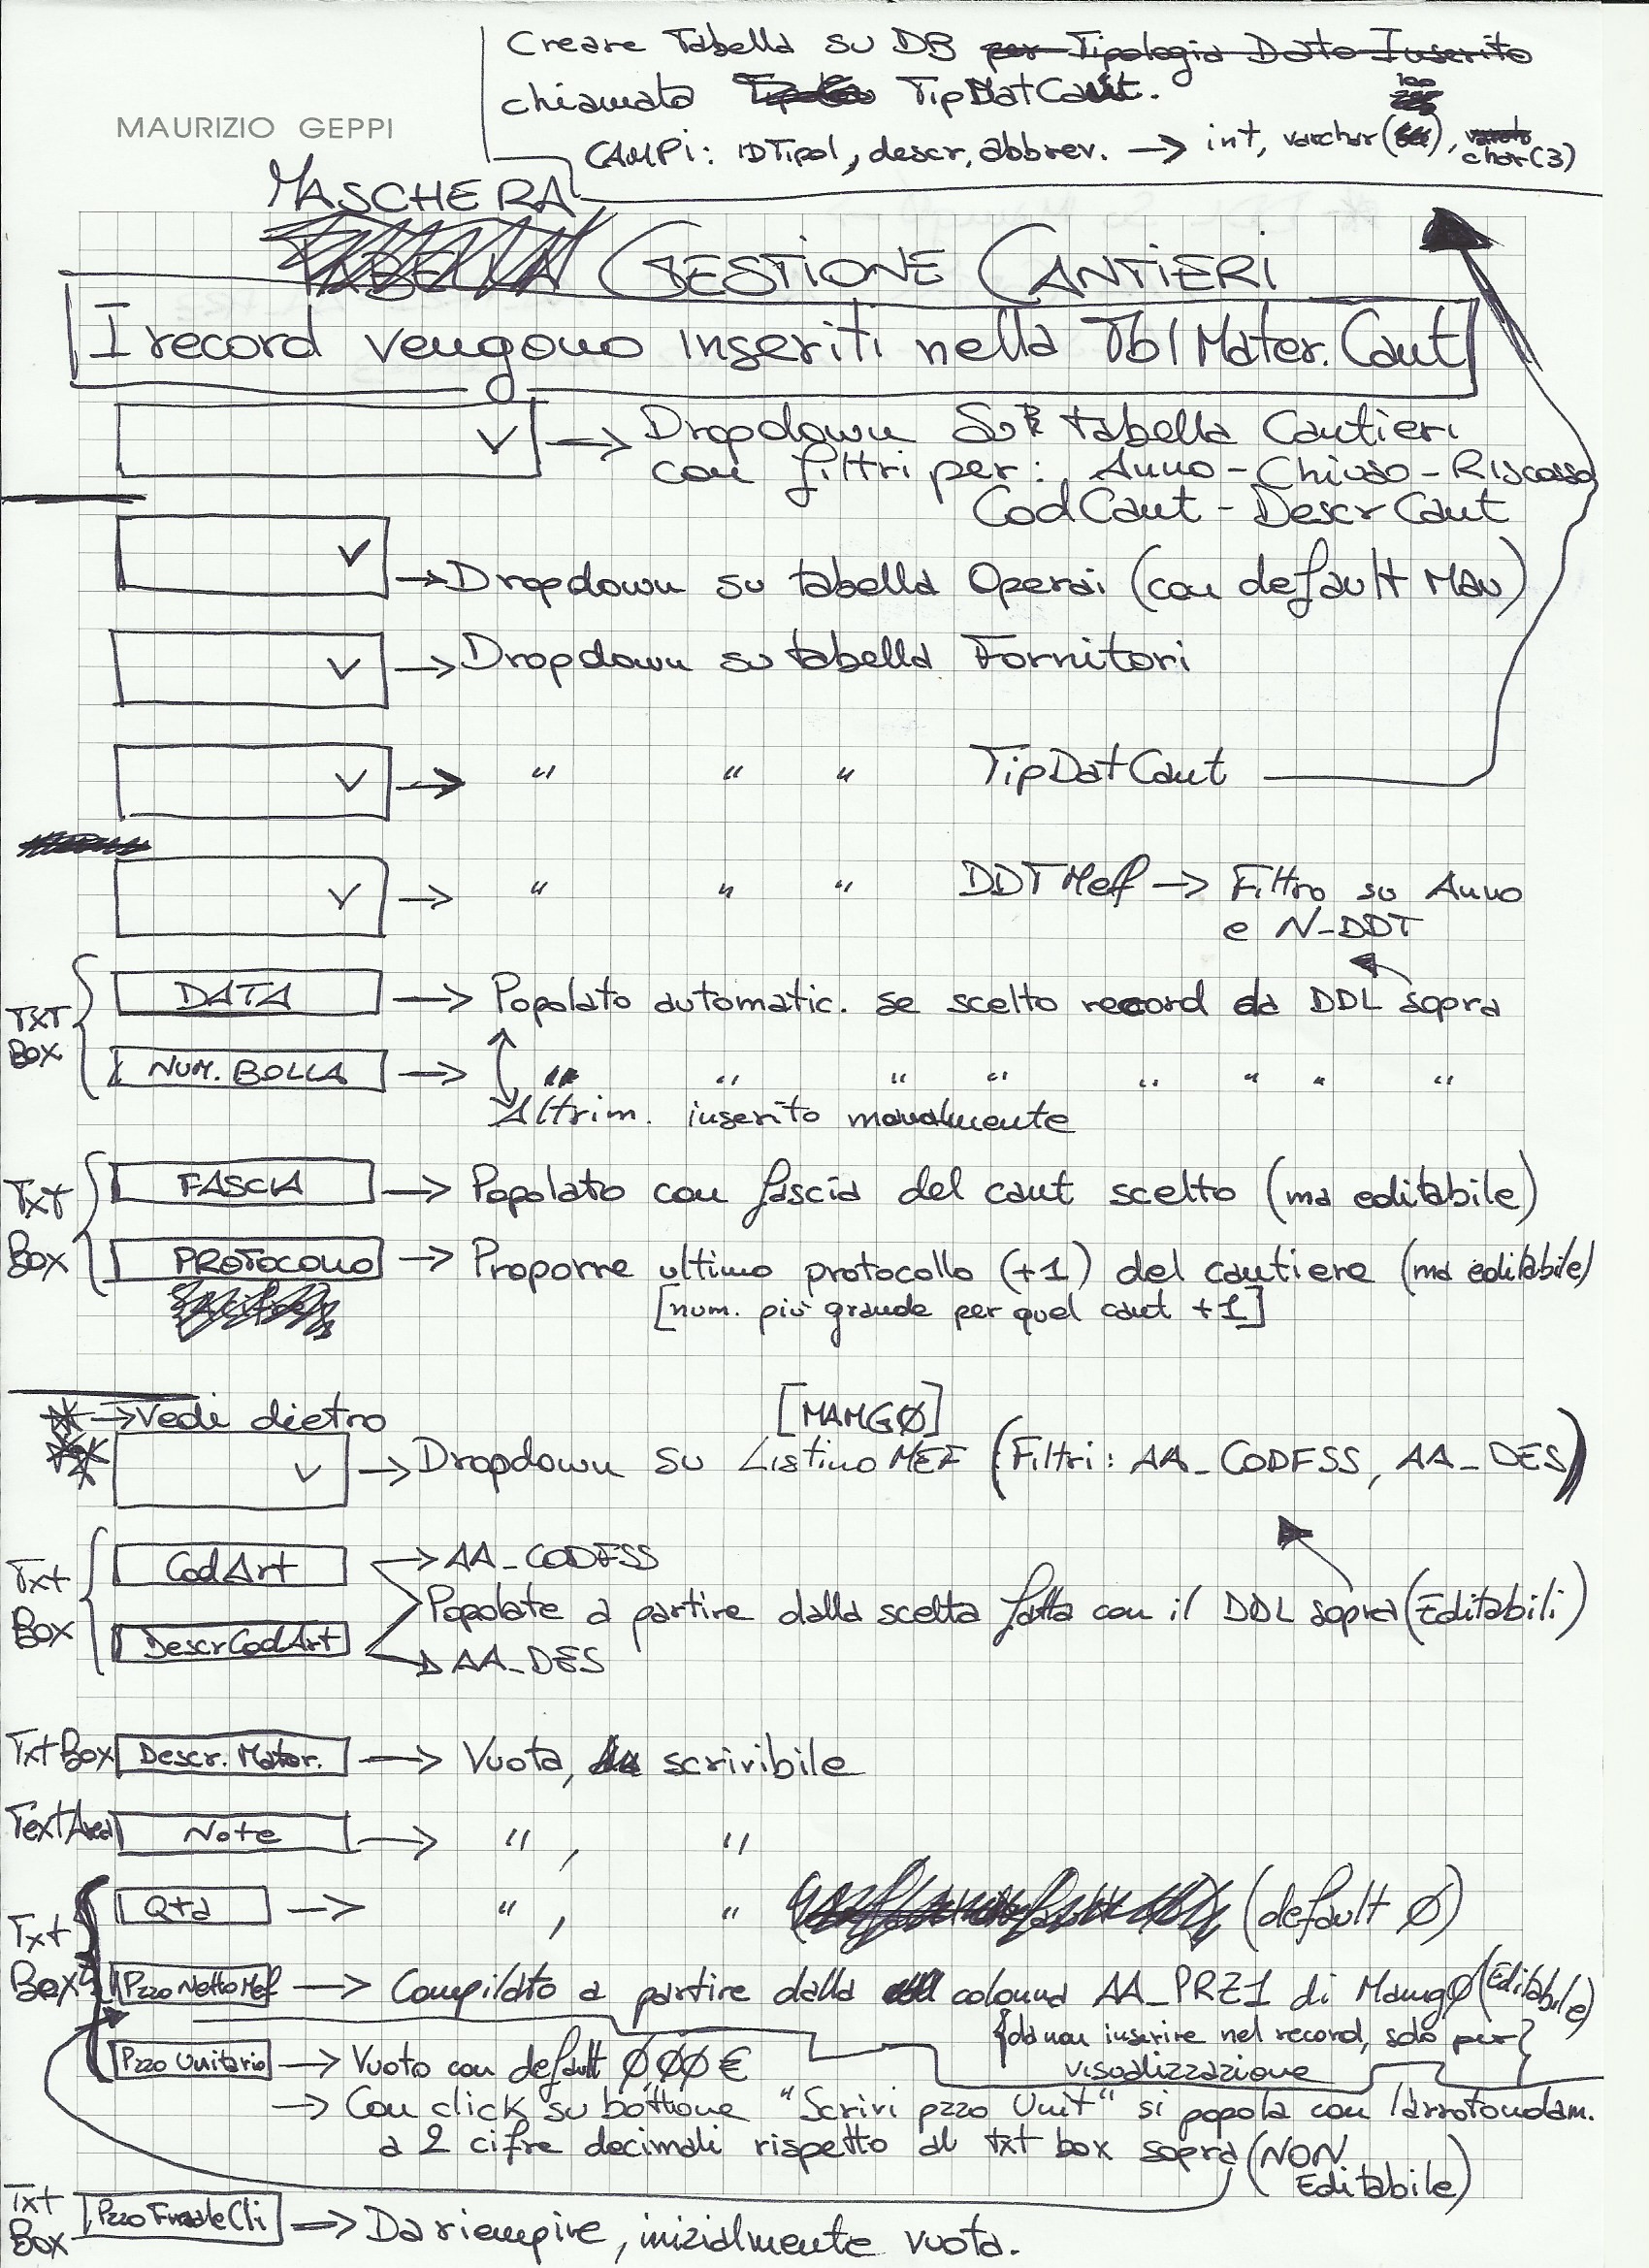 Creare Tabella su DB per Tipologia Dato Inserito
chiamata TipDatCant.
100
MAURIZIO GEPPI
CAMPi: IDTipol, descr, abbrev. → int, varchar( ), char(3)
MASCHERA
TABELLA GESTIONE CANTIERI
I record vengono inseriti nella Tbl Mater.Cant
→ Dropdown Su tabella Cantieri
con filtri per: Anno - Chiuso - Riscosso
CodCant - DescrCant
→ Dropdown su tabella Operai (con default Mau)
→ Dropdown su tabella Fornitori
→ " " " TipDatCant
→ " " " DDTMef → Filtro su Anno
e N_DDT
TXT BOX
DATA → Popolato automatic. se scelto record da DDL sopra
NUM. BOLLA → " " " " " " " "
Altrim. inserito manualmente
Txt Box
FASCIA → Popolato con fascia del cant scelto (ma editabile)
PROTOCOLLO → Proporre ultimo protocollo (+1) del cantiere (ma editabile)
[num. più grande per quel cant +1]
* → Vedi dietro
[MAMG0]
→ Dropdown su Listino MEF (Filtri: AA_CODFSS, AA_DES)
Txt Box
CodArt → AA_CODFSS
Popolate a partire dalla scelta fatta con il DDL sopra (Editabili)
DescrCodArt → AA_DES
Txt Box Descr. Mater. → Vuota, scrivibile
TextArea Note → " , "
Txt Box
Qtà → " , " (default 0)
Pzzo Netto Mef → Compilato a partire dalla colonna AA_PRZ1 di Mamg0 (Editabile)
{da non inserire nel record, solo per}
visualizzazione
Pzzo Unitario → Vuoto con default 0,00 €
→ Con click su bottone "Scrivi pzzo Unit" si popola con l'arrotondam.
a 2 cifre decimali rispetto al txt box sopra (NON
Editabile)
Txt Box
Pzzo FinaleCli → Da riempire, inizialmente vuota.